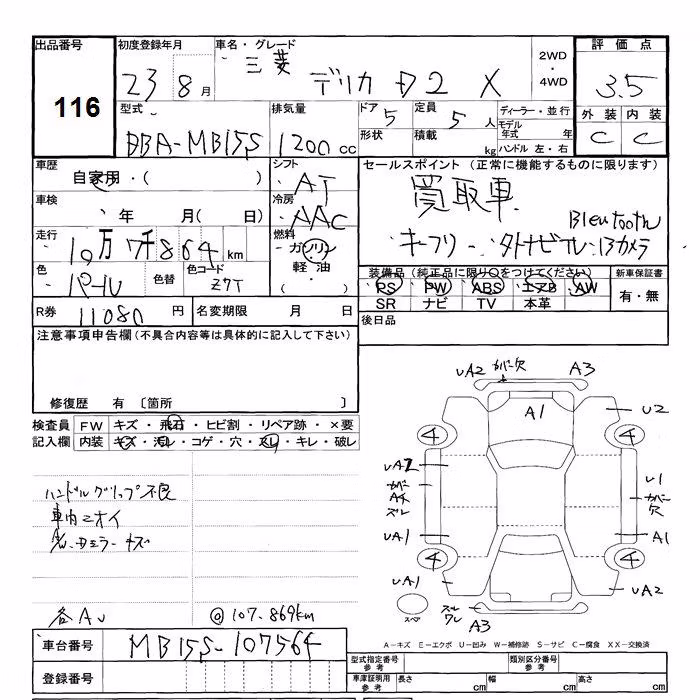 出品番号
116
初度登録年月
23 8月
車名・グレード
三菱 デリカ D2 X
2WD
・
4WD
評価点
3.5
外装 内装
C C
型式
DBA-MB15S
排気量
1200cc
ドア
5
定員
5人
形状
積載
kg
ディーラー・並行
モデル年式 年
ハンドル 左・右
車歴
自家用・( )
車検
年 月( 日)
走行
10万7千864km
色
パール
色替
色コード
Z7T
シフト
AT
冷房
AAC
燃料
ガソリン
軽油・
( )
セールスポイント(正常に機能するものに限ります)
買取車
Bleutooth
キーフリー・外ナビTV・Bカメラ
装備品(純正品に限り○をつけてください)
PS PW ABS エアB AW
SR ナビ TV 本革
新車保証書
有・無
後日品
R券
11080円
名変期限 月 日
注意事項申告欄(不具合内容等は具体的に記入して下さい)
修復歴 有 〔箇所 〕
検査員記入欄
FW キズ・飛石・ヒビ割・リペア跡・×要
内装 キズ・汚レ・コゲ・穴・スレ・キレ・破レ
ハンドルグリップ不良
車内ニオイ
各AU
@107.869km
UA2 カバー欠 A3
A1
U2
4 4
UA2
カバー
ズレ
U1
カバー
欠
UA1
A1
4 4
UA1
UA2
スペア
A3
A-キズ E-エクボ U-凹み W-補修跡 S-サビ C-腐食 XX-交換済
車台番号
MB15S-107564
登録番号
型式指定番号
参考
類別区分番号
参考
車庫証明用
参考
長さ cm
幅 cm
高さ cm